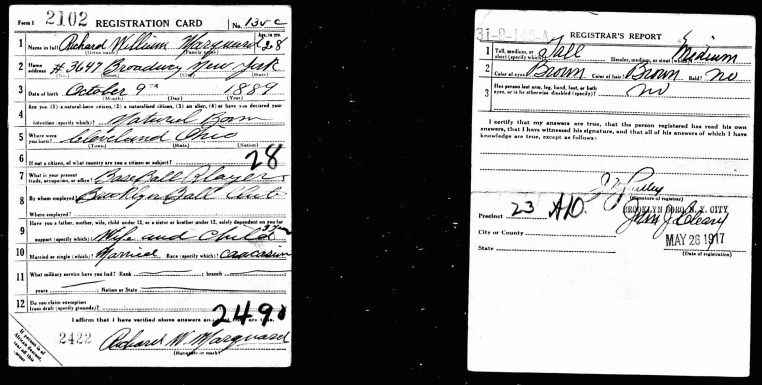 Form 1 2102 REGISTRATION CARD No. 135 C
1 Name in full Richard William Marquard Age, in yrs. 28
(Given name) (Family name)
2 Home address # 3647 Broadway New York
(No.) (Street) (City) (State)
3 Date of birth October 9 1889
(Month) (Day) (Year)
4 Are you (1) a natural-born citizen, (2) a naturalized citizen, (3) an alien, (4) or have you declared your
intention (specify which)? Natural Born
5 Where were you born? Cleveland Ohio
(Town) (State) (Nation)
6 If not a citizen, of what country are you a citizen or subject? 28
7 What is your present trade, occupation, or office? Base Ball Player
8 By whom employed? Brooklyn Ball Club
Where employed?
9 Have you a father, mother, wife, child under 12, or a sister or brother under 12, solely dependent on you for
support (specify which)? Wife and Child
10 Married or single (which)? Married Race (specify which)? Caucasian
11 What military service have you had? Rank ; branch
years ; Nation or State
12 Do you claim exemption from draft (specify grounds)?
2490
I affirm that I have verified above answers and that they are true.
2422 Richard W. Marquard
(Signature or mark)
If person is of African descent, tear off this corner
31-9-148-A
REGISTRAR'S REPORT
1 Tall, medium, or short (specify which)? Tall Slender, medium, or stout (which)? Medium
2 Color of eyes? Brown Color of hair? Brown Bald? No
3 Has person lost arm, leg, hand, foot, or both eyes, or is he otherwise disabled (specify)? No
I certify that my answers are true, that the person registered has read his own
answers, that I have witnessed his signature, and that all of his answers of which I have
knowledge are true, except as follows:
(Signature of registrar)
Precinct 23 A.D. BROOKLYN BORO. N.Y. CITY
City or County John J. Cleary
State MAY 26 1917
(Date of registration)